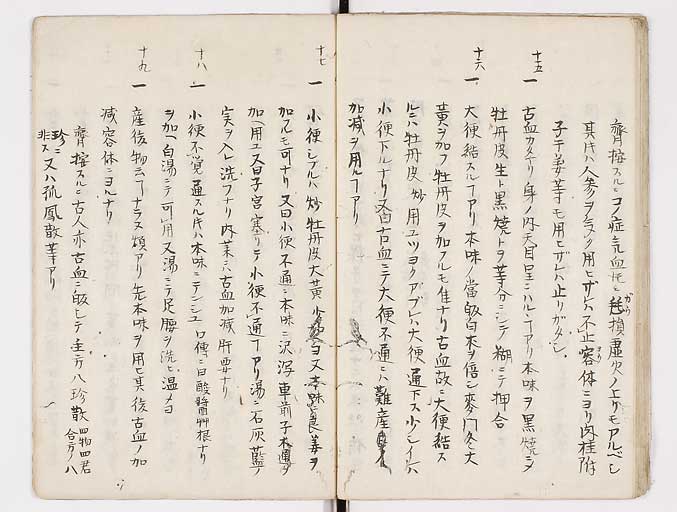 齊按スルニコノ症気血トモニ耗損虚欠ノ上リモアルベシ
其時ハ人参ヲ多ク用ヒザレハ不止容体ニヨリ肉桂附
子干姜等モ用ヒザレハ止リガタシ
十五
一 古血カタマリ身ノ内天目呈ニハルヿアリ本味ヲ黒焼ニシ
牡丹皮生ト黒焼トヲ等分ニシテ糊ニテ押合
十六
一 大便結スルヿアリ本味ノ當皈白木ヲ倍シ麥門冬大
黄ヲ加フ牡丹皮ヲ加フルモ佳ナリ古血故ニ大便結ス
ルニハ牡丹皮炒用ユツヨクアブレハ大便通下ス少シイレハ
小便下ルナリ又曰古血ニテ大便不通ニハ難産
加減ヲ用ルヿアリ
十七
一 小便シブルハ炒牡丹皮大黄 ヨシ本味 姜ヲ
加ルモ可ナリ又曰小便不通ニ本味ニ沢瀉車前子木通ヲ
加ヘ用ユ又曰子宮塞リテ小便不通ヿアリ湯ニ石灰藍ノ
実ヲ入レ洗フナリ内薬ニハ古血加減肝要ナリ
十八
一 小便不覚通スル時ハ本味ニテンシユ 口傳ニ曰酸醤艸根ナリ
ヲ加ヘ白湯ニテ可用又湯ニテ足腰ヲ洗ヒ温メヨ
十九
一 産後物云ヿナラヌ類アリ先本味ヲ用ヒ其後古血ノ加
減容体ニヨルナリ
齊按スルニ古人亦古血ニ皈シテ 方八珍散 四物四君合方ノ八
珍ニ非ス 又ハ孤鳳散等アリ